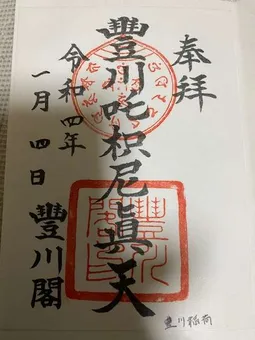 奉拝
豐川吒枳尼眞天
令和四年
一月四日
豐川閣
豊川閣印
豊川稲荷